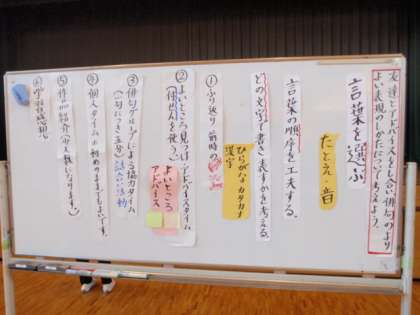 友達とアドバイスをし合い、俳句のより
よい表現のしかたについて考えよう。
言葉を選ぶ
たとえ・音
言葉の順序を工夫する。
どの文字で書き表すかを考える。
ひらがな カタカナ
漢字
① ふり返り 前時の
② よいところ見つけ アドバイスタイム
(付せんを使って)
よいところ
アドバイス
③ 俳句グループによる協力タイム
(一句につき五分)
④ 個人タイム
⑤ 俳句紹介
⑥ 学習感想